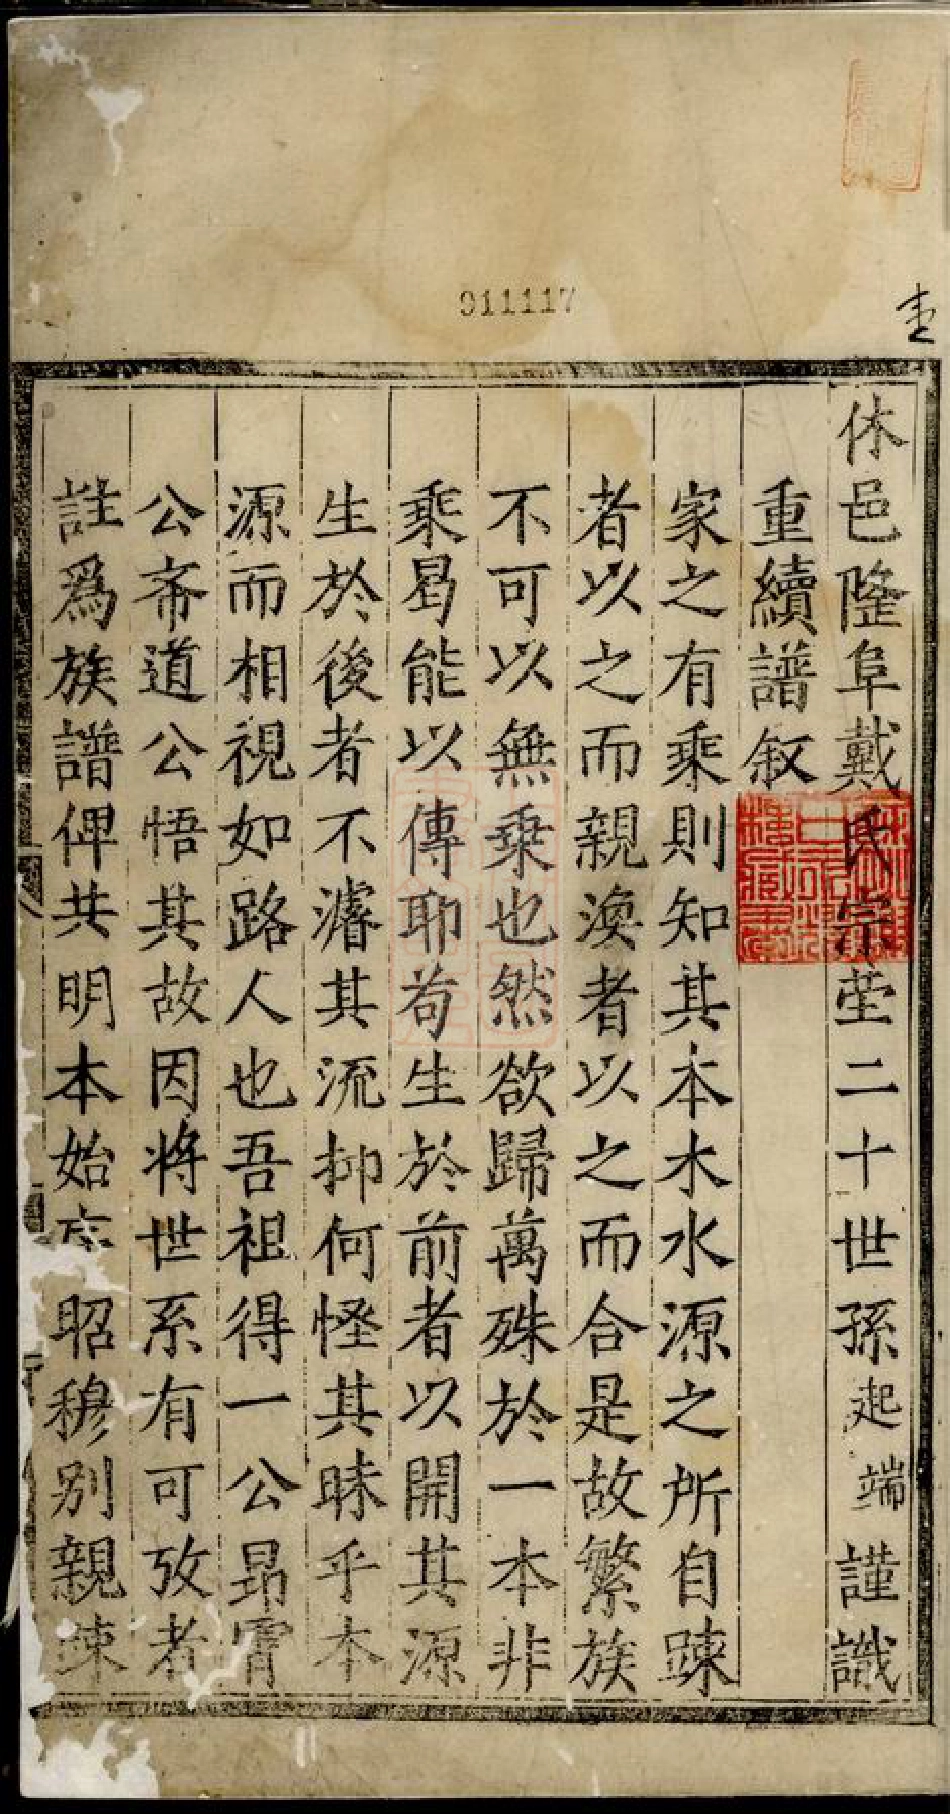 休邑隆阜戴氏宗堂二十世孫起端謹識
重續譜叙
家之有乘則知其本木水源之所自踈
者以之而親渙者以之而合是故繁族
不可以無乘也然欲歸萬殊於一本非
乘曷能以傳耶苟生於前者以開其源
生於後者不濬其流抑何怪其昧乎本
源而相視如路人也吾祖得一公昴霄
公斋道公悟其故因将世系有可攷者
註爲族譜俾共明本始序昭穆别親踈
911117